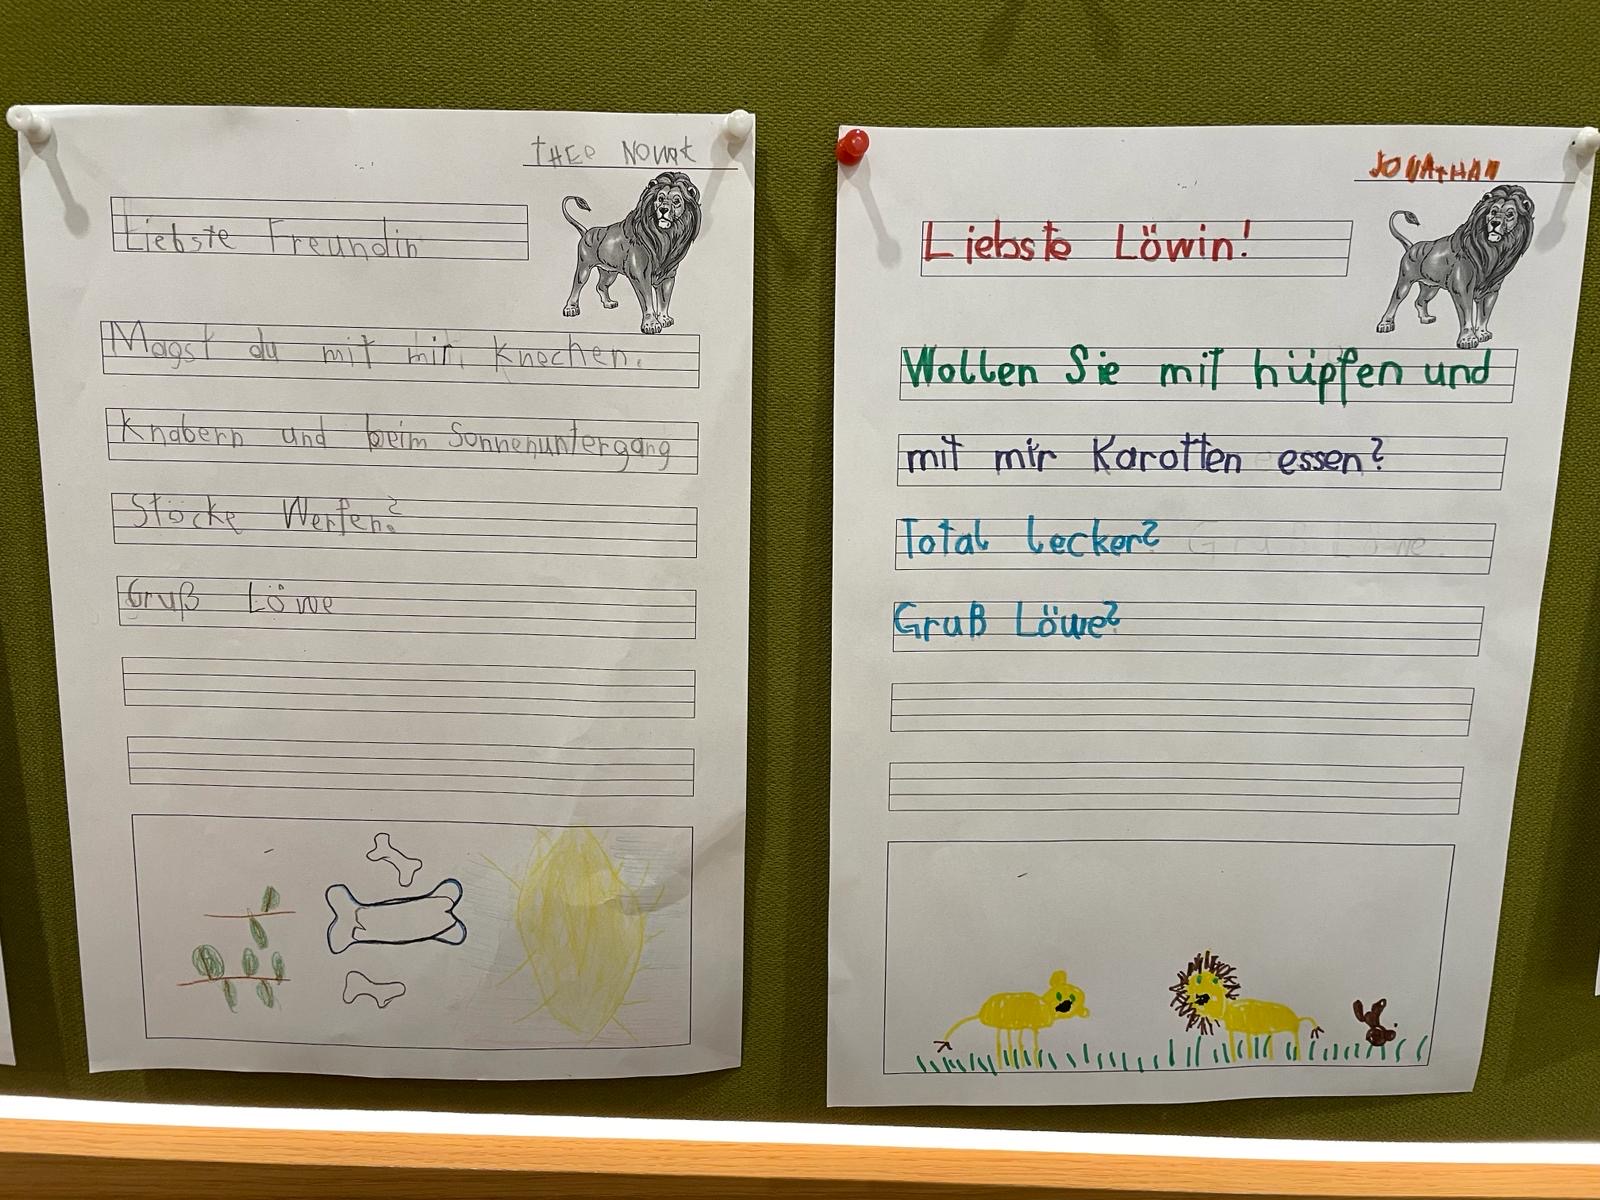 THEO NOVAK
Liebste Freundin
Magst du mit mir, Knochen.
Knabern und beim Sonnenuntergang
Stöcke Werfen?
Gruß Löwe
JONATHAN
Liebste Löwin!
Wollen Sie mit hüpfen und
mit mir Karotten essen?
Total lecker? Gruß Löwe.
Gruß Löwe?